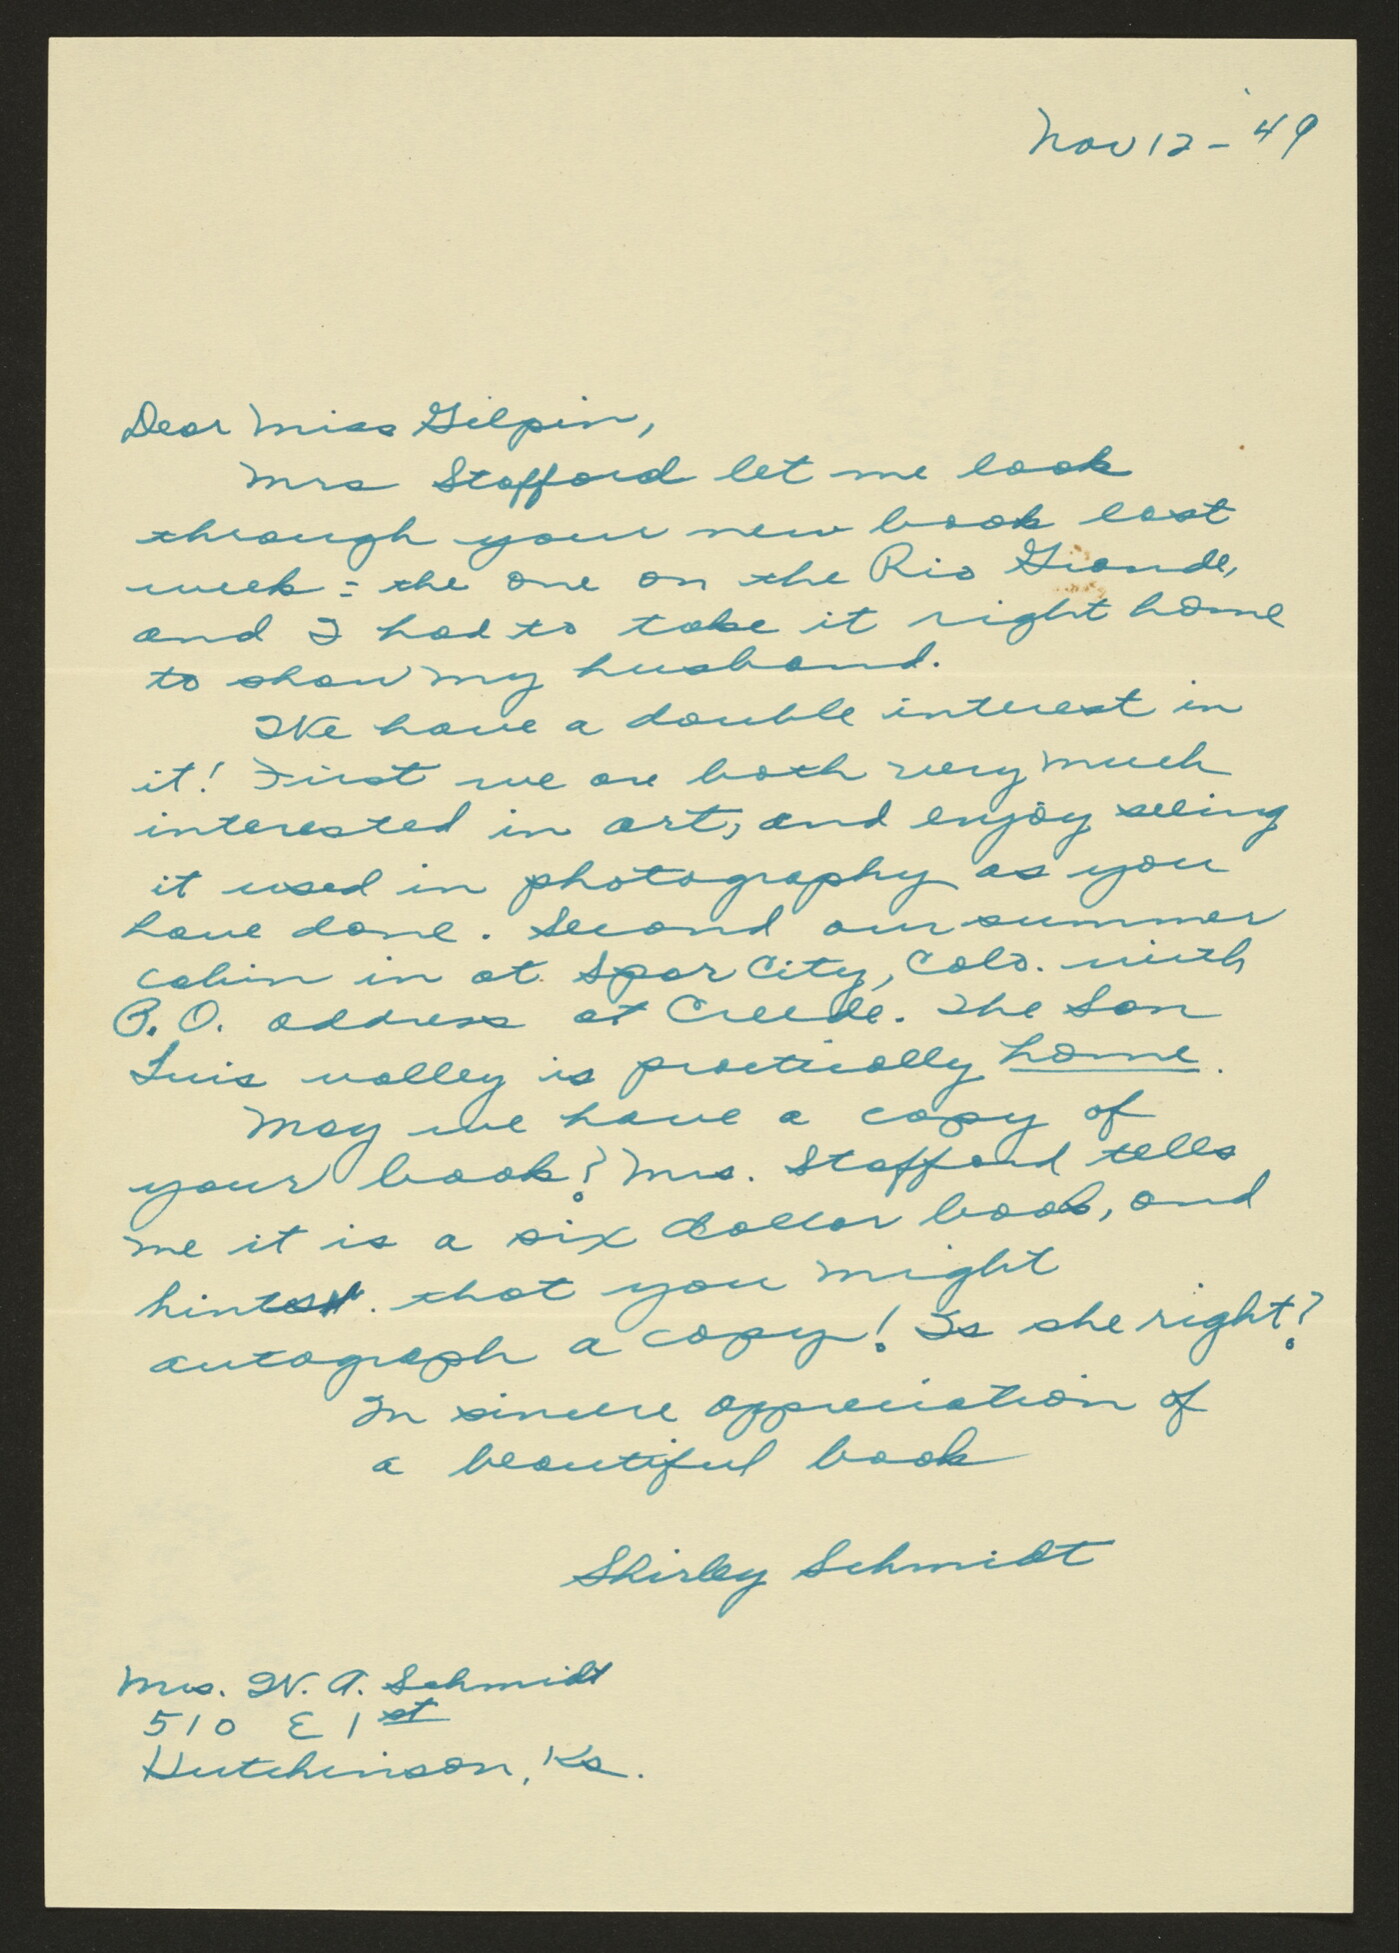 Nov 12 - '49
Dear Miss Gilpin,
Mrs Stafford let me look
through your new book last
week - the one on the Rio Grande,
and I had to take it right home
to show my husband.
We have a double interest in
it! First we are both very much
interested in art, and enjoy seeing
it used in photography as you
have done. Second our summer
cabin in at Spar City, Colo. with
P.O. address at Creede. The San
Luis valley is practically home.
May we have a copy of
your book? Mrs. Stafford tells
me it is a six dollar book, and
hinted that you might
autograph a copy! Is she right?
In sincere appreciation of
a beautiful book
Shirley Schmidt
Mrs. W. A. Schmidt
510 E 1st
Hutchinson, Ks.